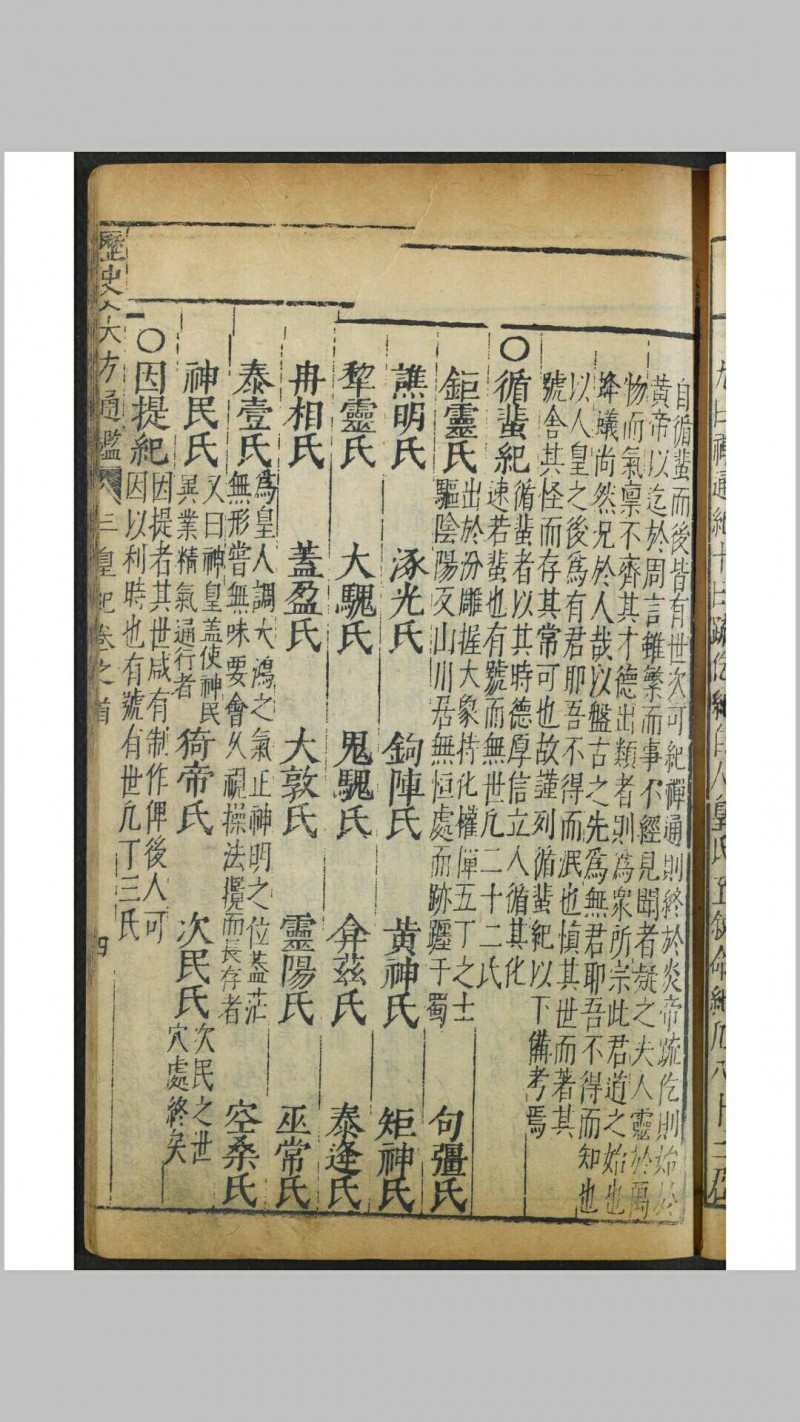 自循蜚而後皆有世次可紀禪通則終於炎帝疏仡則始於
黃帝以迄於周言雖繁而事不經見聞者疑之夫人靈於萬
物而氣稟不齊其才德出類者則為衆所宗此君道之始也
蜂蟻尚然况於人哉以盤古之先為無君耶吾不得而知也
以人皇之後為有君耶吾不得而泯也慎其世而著其
號舍其怪而存其常可也故謹列循蜚紀以下備考焉
〇循蜚紀
循蜚者以其時德厚信立人循其化
速若蜚也有號而無世凢二十二氏
鉅靈氏
出於汾雎握大象持化權僤五丁之士
驅陰陽反山川居無恒處而跡躔于蜀
句彊氏
譙明氏 涿光氏 鉤陣氏 黃神氏 矩神氏
犂靈氏 大騩氏 鬼騩氏 弇茲氏 泰逢氏
冉相氏 蓋盈氏 大敦氏 靈陽氏 巫常氏
泰壹氏
為皇人調大鴻之氣正神明之位蓋茫
無形嘗無味要會久視操法攬而長存者
空桑氏
神民氏
又曰神皇蓋使神民
異業精氣通行者
猗帝氏 次民氏
次民之世
穴處終矣
〇因提紀
因提者其世咸有制作俾後人可
因以利時也有號有世凢丁三氏
歷史大方通鑑 三皇紀卷之首 四